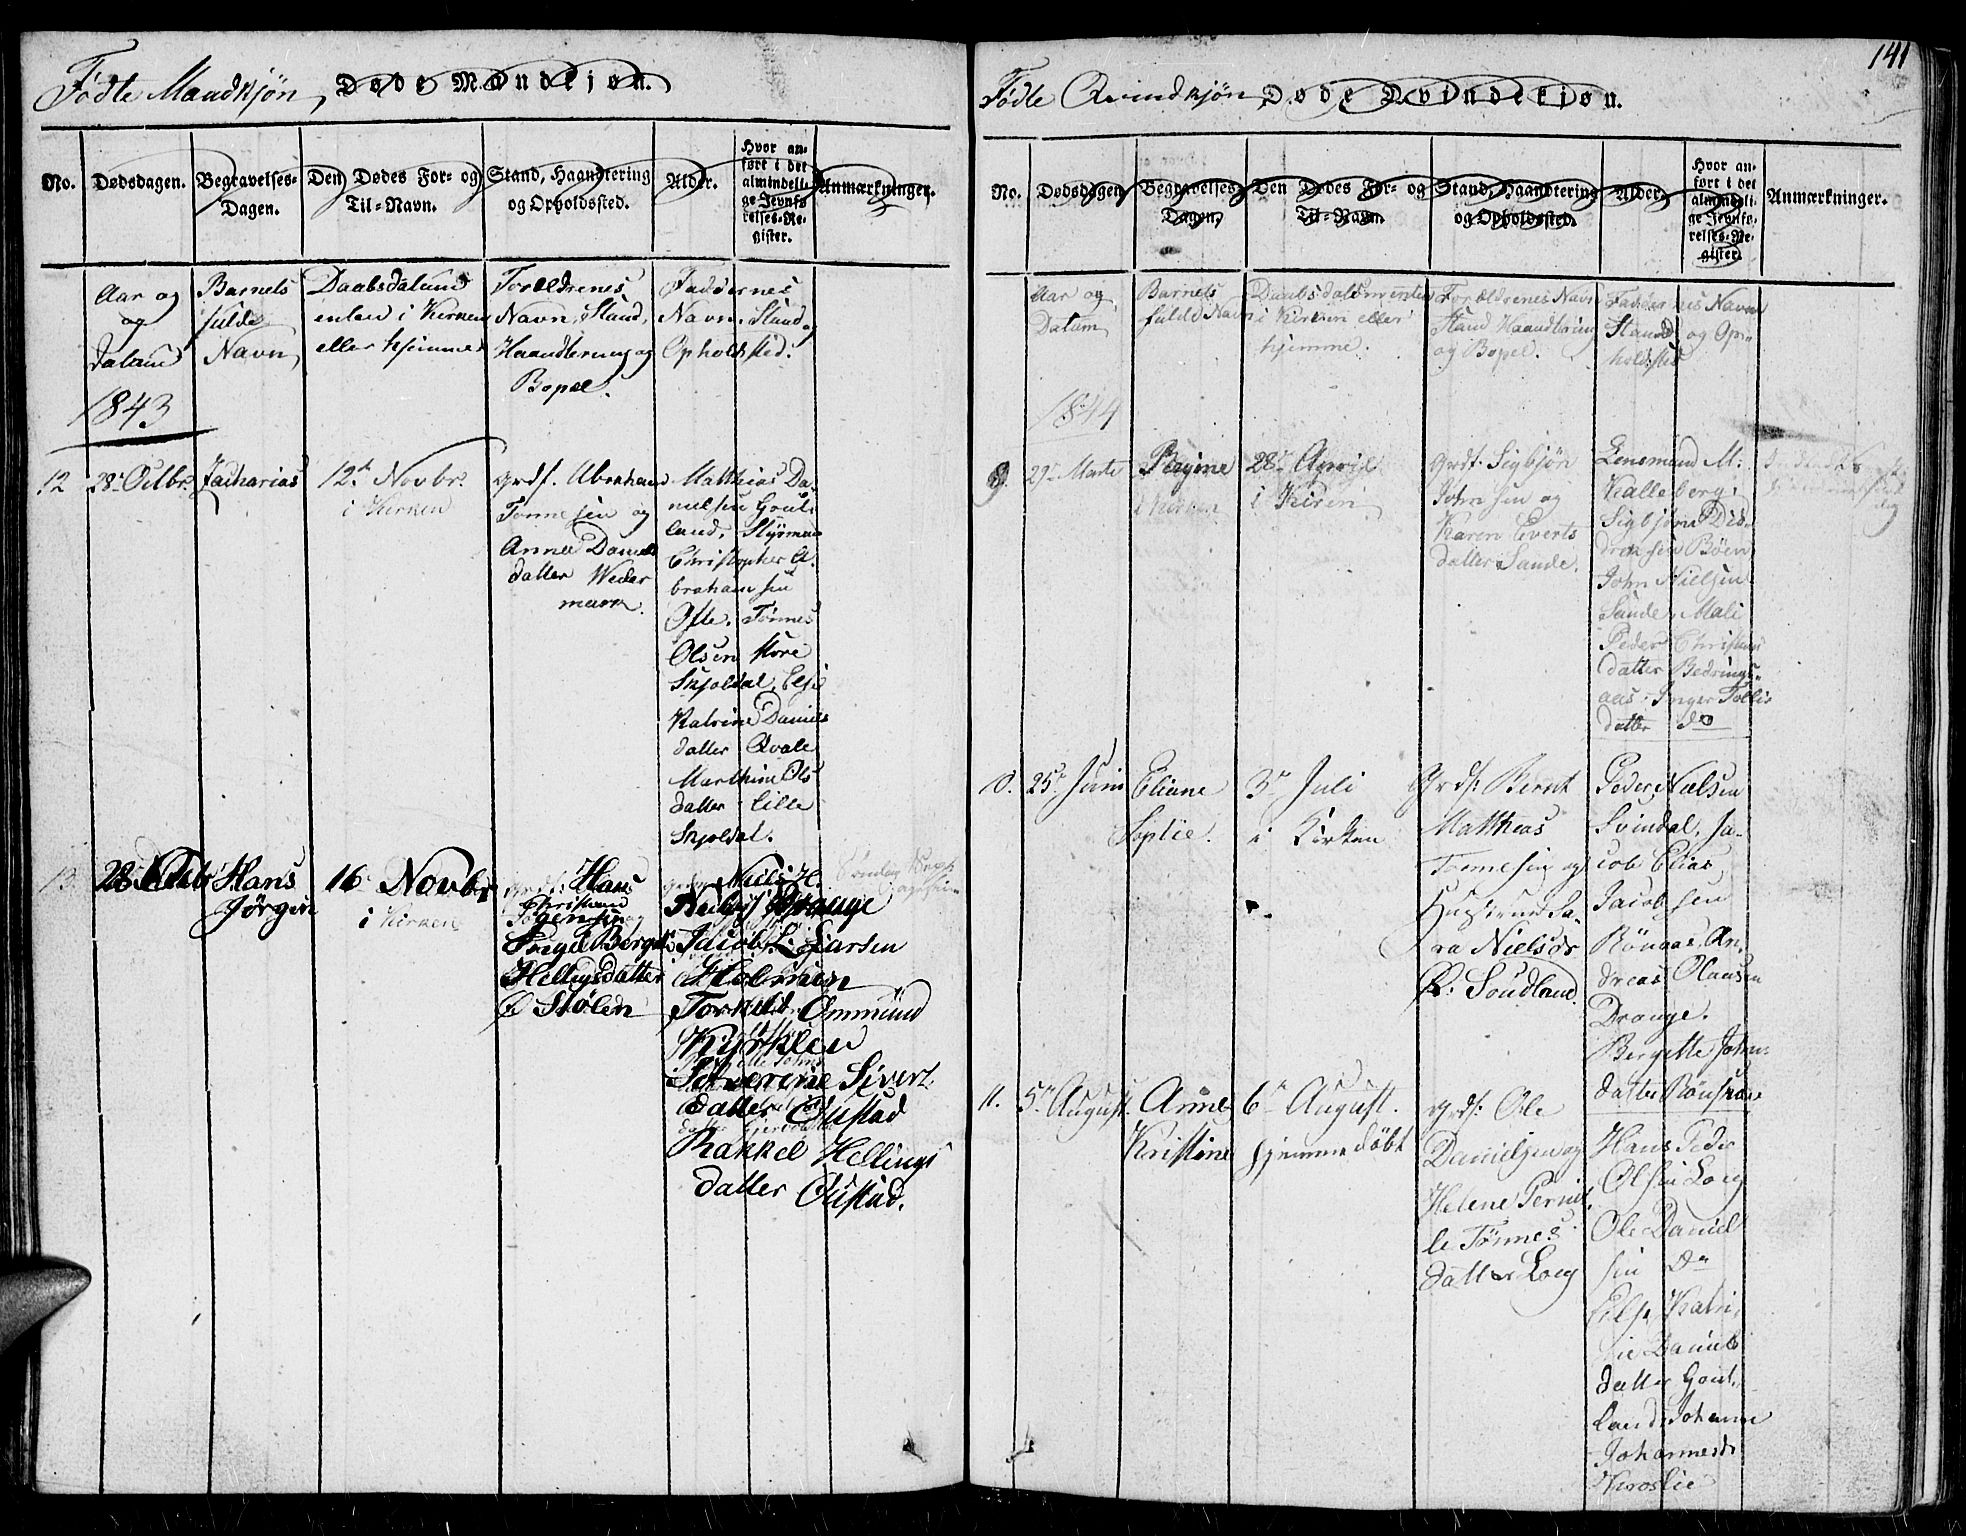 Fødte Mandkjön, Døde Mandkjøn.
No.
Dødsdagen.
Begravelses-
Dagen.
Den Dødes For- og
Til-Navn.
Stand, Haandtering
og Opholdssted.
Alder.
Hvor an-
ført i det
almindeli-
ge Jevnfø-
relses-Re-
gister.
Anmærkninger.
Aar og
og
datum
1843
Barnets
fulde
Navn
Daabsdatum
enten i Kirken
eller hjemme
Forældrenes
Navn, Stand,
Haandtering og
Bopæl.
Faddernes
Navn, Stand og
Opholdsted.
12
28. Octbr.
Zacharias
12te Novbr.
i Kirken
Grdf. Abraham
Tonnesen og
Anne Daniels
datter Weder
mark.
Matthias Da-
nielsen Gout-
land, Styrman
Christopher A-
brahamsen
Ofte. Tönnes
Olsen Store
Skjoldal, Else
Katrine Daniels
datter Qvale
Marthine Ols
datter Lille
Skjoldal.
13.
28. Octbr
Hans
Jörgen
16 Novbr
i Kirken
Grdf. Hans
Christian
Jörgensen og
Inger Berget
Hellegsdatter
Stölen
Niels H.
Drange
Jacob L. Larsen
Torkild Ommund
Sölverine Sivert
datter Oustad
Rakkel Hellings
datter Oustad.
141
Födte Qvindkjön, Døde Qvindekjøn.
No.
Dødsdagen
Begravelses-
Dagen.
Den Dødes For- og
Til-Navn.
Stand, Haandtering
og Opholdssted.
Alder.
Hvor an-
ført i det
almindeli-
ge Jevnfø-
relses-Re-
gister.
Anmærkninger.
Aar og
Datum
1844
Barnets
fulde Navn
Daabsdatum enten
i Kirken eller
hjemme.
Forældrenes Navn
Stand Haandtering
og Bopel.
Faddernes Navn
Stand og Op-
holdssted
9.
29. Marts
Regine
i Kirken
28. April
i Kirken
Grdf. Sigbjön
Johnsen og
Karen Everts
datter Sande.
Lensmand M:
Kalleberg,
Sigbjörn Did-
riksen Böen
John Nielsen
Sande, Mali
Peder Christens
datter Bedrings-
aas. Inger Tollis
datter do
10.
25. Juni
Eliane
Sophie.
3die Juli
i Kirken
Grdf. Bernt
Matthias
Tonnesen og
Hustrue Sa-
ra Nielsdr
R: Soudland.
Peder Nielsen
Svindal, Ja-
cob Elias
Jacobsen
Rönaas, An-
dreas Olausen
Drange.
Bergitte John-
datter Rönsnes
11.
5te August.
Anne
Kristine
6te August.
hjemmedöbt
Grdf. Ole
Danielsen og
Helene Pernil-
le Tönnes
datter Loeg
Hans Peder
Olsen Loeg
Ole Daniel
sen do
Else Katri-
ne Daniels
datter Gout-
land. Johanne
Johannesdr
Kroslie